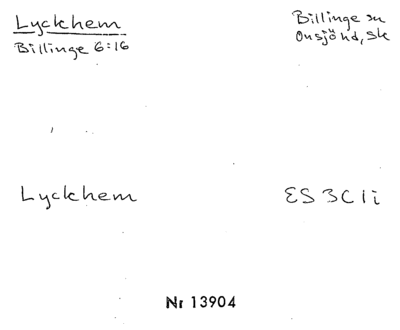 Lyckhem
Billinge sn
Billinge 6:16
Onsjöhd, Sk
Lyckhem
ES 3C1i
Nr 13904